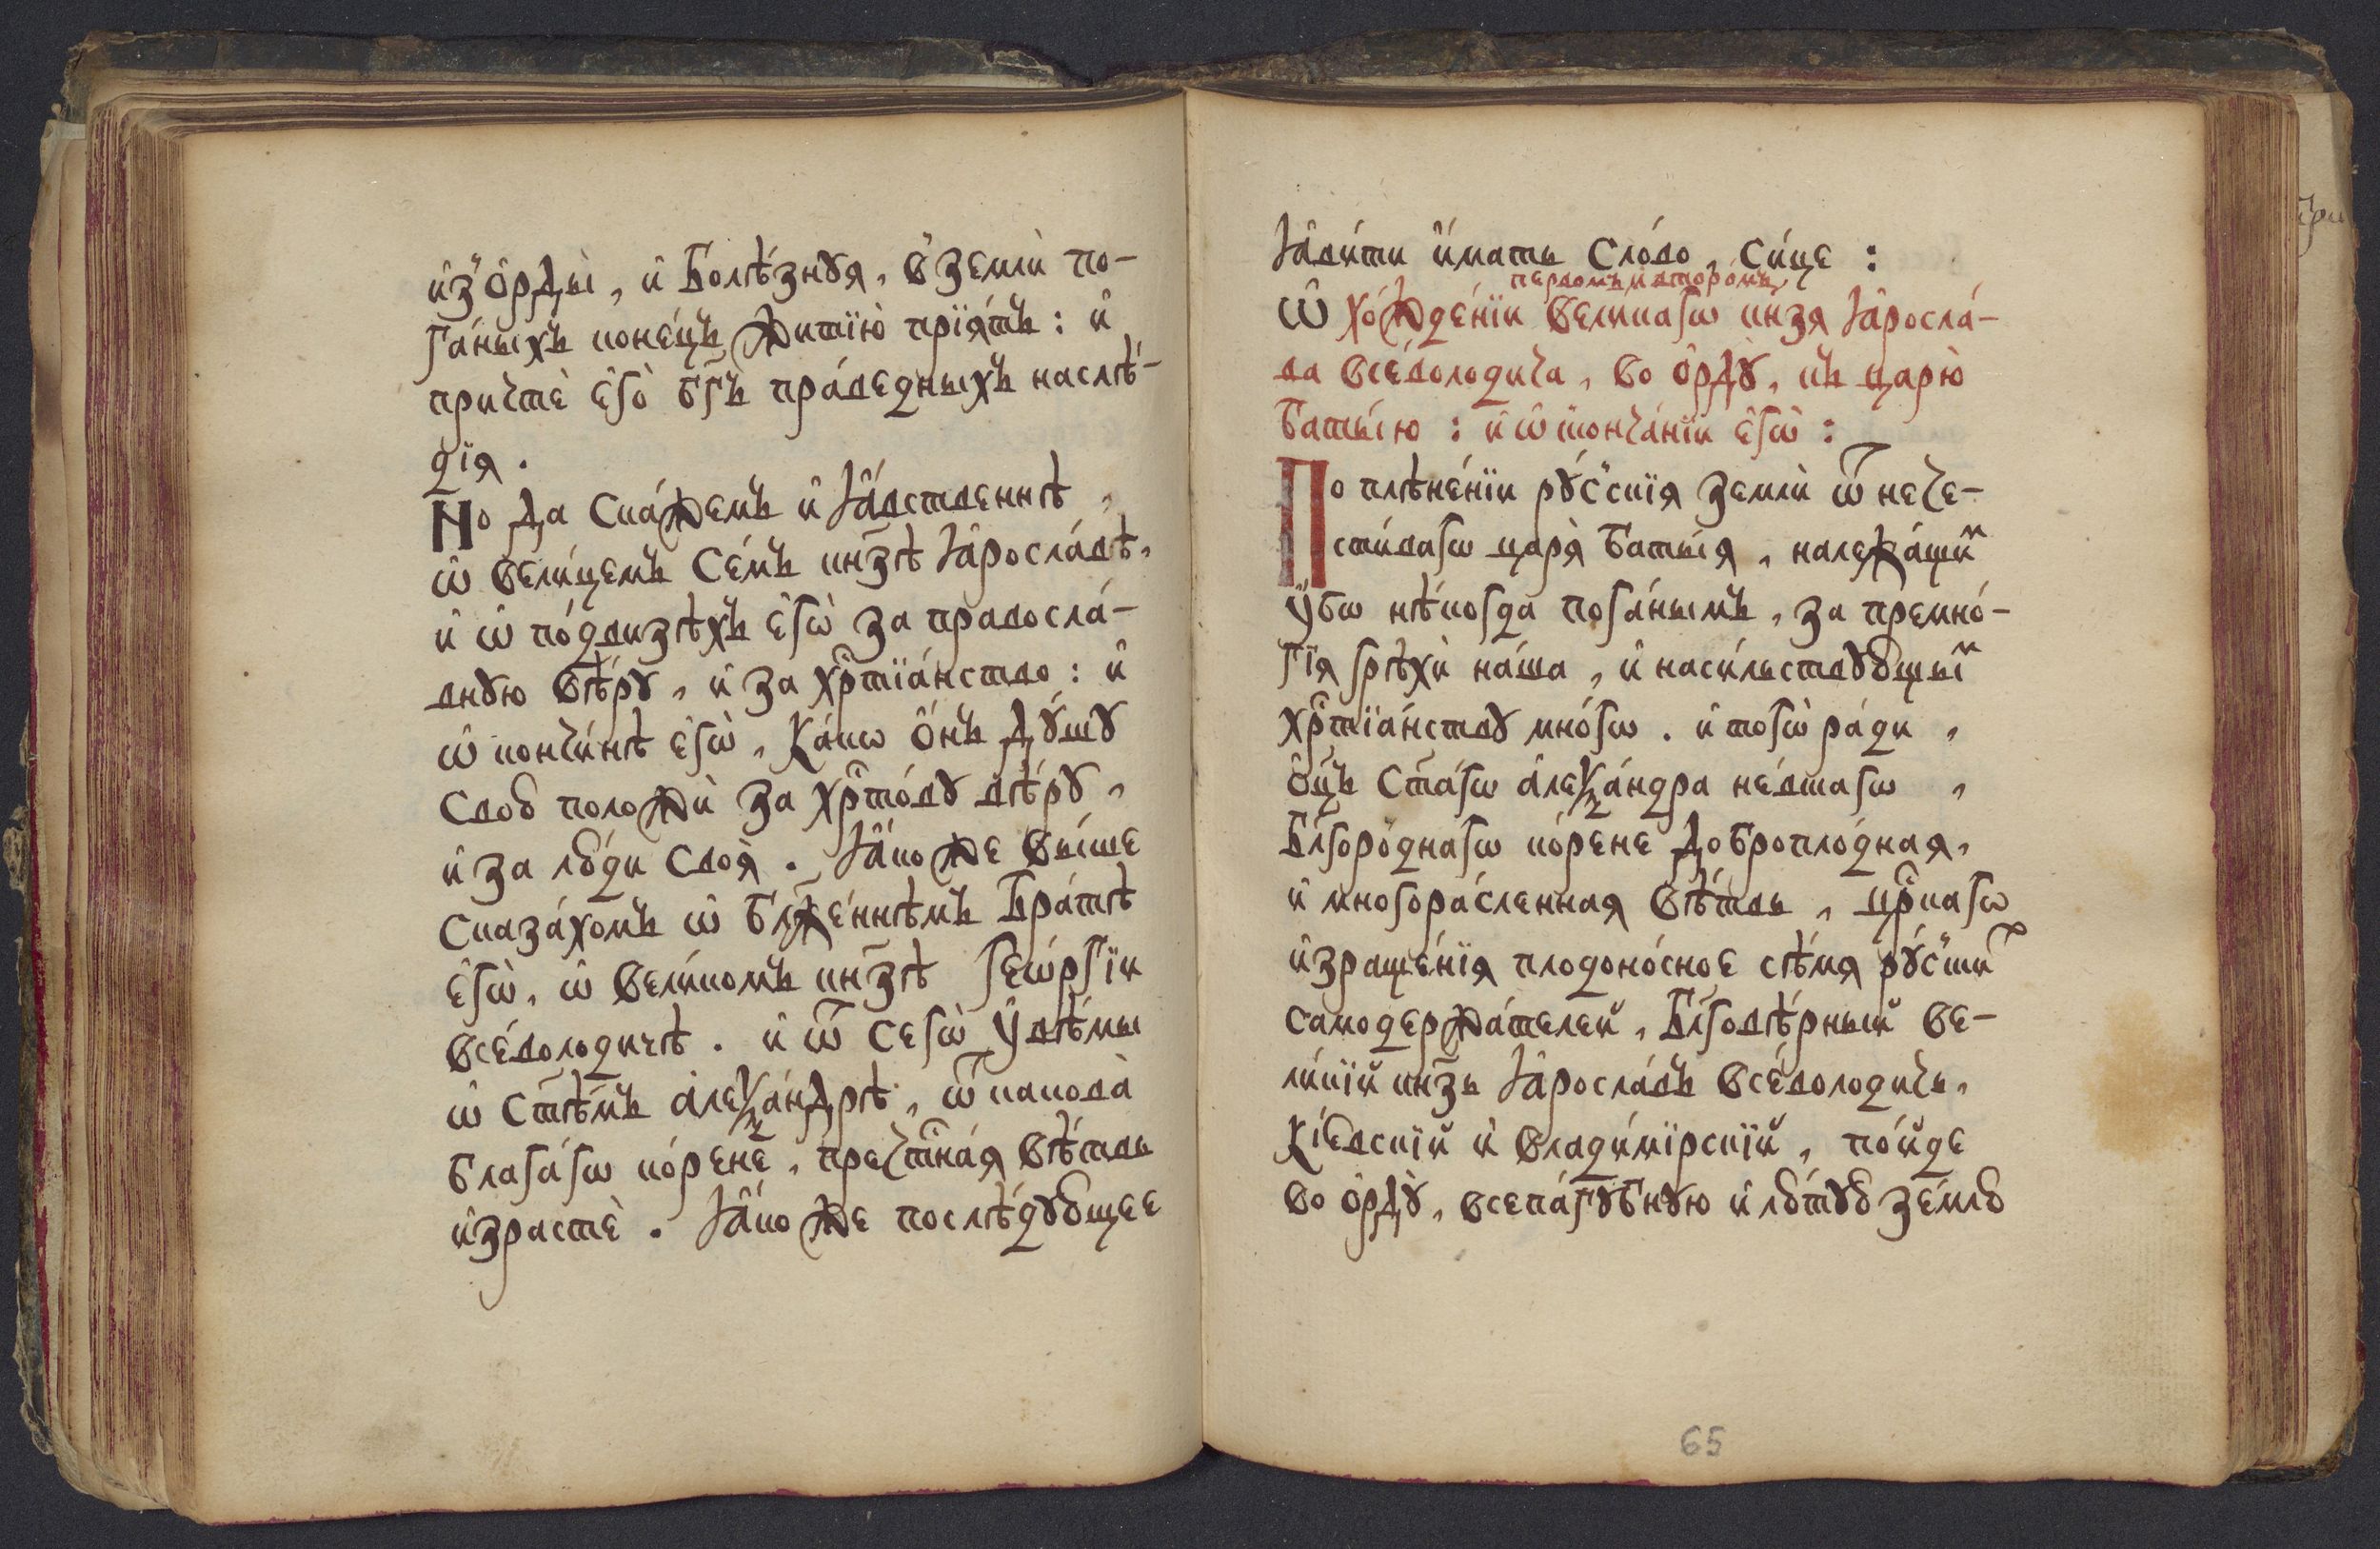 и҆з̾ ѻ҆рды̀, и҆ болѣ́знꙋя, в̾ землѝ по-
га́ныхъ коне́цъ житїю̀ прїѧ́тъ: и҆
причтѐ є҆го̀ бг҃ъ пра́ведныхъ наслѣ́-
дїѧ.
Но да ска́жемъ и҆ ꙗ҆́вственнѣ,
ѡ҆ вели́цемъ се́мъ кн҃зѣ ꙗ҆росла́вѣ,
и҆ ѡ҆ по́двизѣхъ є҆гѡ̀ за правосла́-
вную вѣ́рꙋ, и҆ за хрⷭ҇тїа́нство: и҆
ѡ҆ кончи́нѣ є҆гѡ̀, ка́кѡ ѻ҆́нъ дꙋ́шꙋ
свою положѝ за хрⷭ҇то́вꙋ вѣ́рꙋ,
и҆ за лю́ди своѧ̀. ꙗ҆́коже вы́ше
сказа́хомъ ѡ҆ бл҃же́ннѣмъ бра́тѣ
є҆гѡ̀, ѡ҆ вели́комъ кн҃зѣ геѡ́ргїи
все́володичѣ. и҆ ѿ сегѡ̀ ᲂу҆вѣ́мы
ѡ҆ ст҃ѣ́мъ а҆леѯа́ндрѣ, ѿ какова̀
блага́гѡ ко́рене, пречⷭ҇тна́ѧ вѣ́твь
и҆зрастѐ. ꙗ҆́коже послѣ́дꙋющее
ꙗ҆ви́ти и҆́мать сло́во, си́це:
первомъ и҆ второ́мъ
Ѡ҆ хожде́нїи вели́кагѡ кн҃зѧ ꙗ҆росла́-
ва все́володича, во ѻ҆рдꙋ̀, къ царю̀
баты́ю: и҆ ѡ҆ скончанїи є҆гѡ̀:
По плѣне́нїи рꙋ́сскїѧ землѝ ѿ нече-
сти́вагѡ царѧ̀ баты́ѧ, належа́щиⷨ
ᲂу҆́бѡ нѣ́когда пога́нымъ, за премнѡ́-
гїѧ грѣхѝ на́ша, и҆ наси́льствꙋющыⷨ
хрⷭ҇тїа́нствꙋ мно́гѡ. и҆ тогѡ̀ ра́ди,
ѻ҆ц҃ъ ст҃а́гѡ а҆леѯа́ндра не́вскагѡ,
бл҃горо́днагѡ ко́рене доброплѻ́днаѧ,
и҆ многора́сленнаѧ вѣ́твь, црⷭ҇кагѡ
и҆зраще́нїѧ плодоно́сное сѣ́мѧ рꙋ́сскиⷯ
самодержа́телей, бл҃говѣ́рный ве-
ли́кїй кн҃зь ꙗ҆росла́въ все́володичь,
кі́евскїй и҆ влади́мїрскїй, по́йде
во ѻ҆рдꙋ̀, всепа́гꙋбнꙋю и҆ лю́тꙋю зе́млю
65